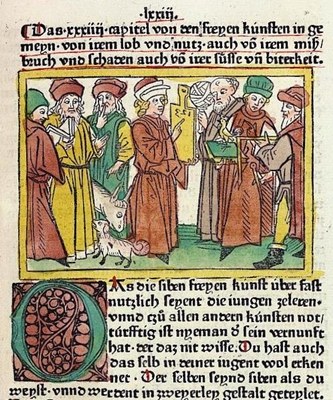 lxxiij.
Das.xxxiiij.capitel von den freyen künsten in ge
meyn·von irem lob vnd nutz·auch võ irem miß/
bruch vnd schaden auch võ irer süsse vñ biterkeit.
DAs die siben freyen künst über fast
nutzlich seyent die iungen zeleren·
vnnd czů allen andern künsten not/
türfftig ist nyeman ð sein vernunft
hat·der daz nit wisse. Du hast auch
das selb in deiner iugent wol erken
net· Der selben seynd siben als du
weyst·vnnd werdent in zweyerley gestalt geteylet.